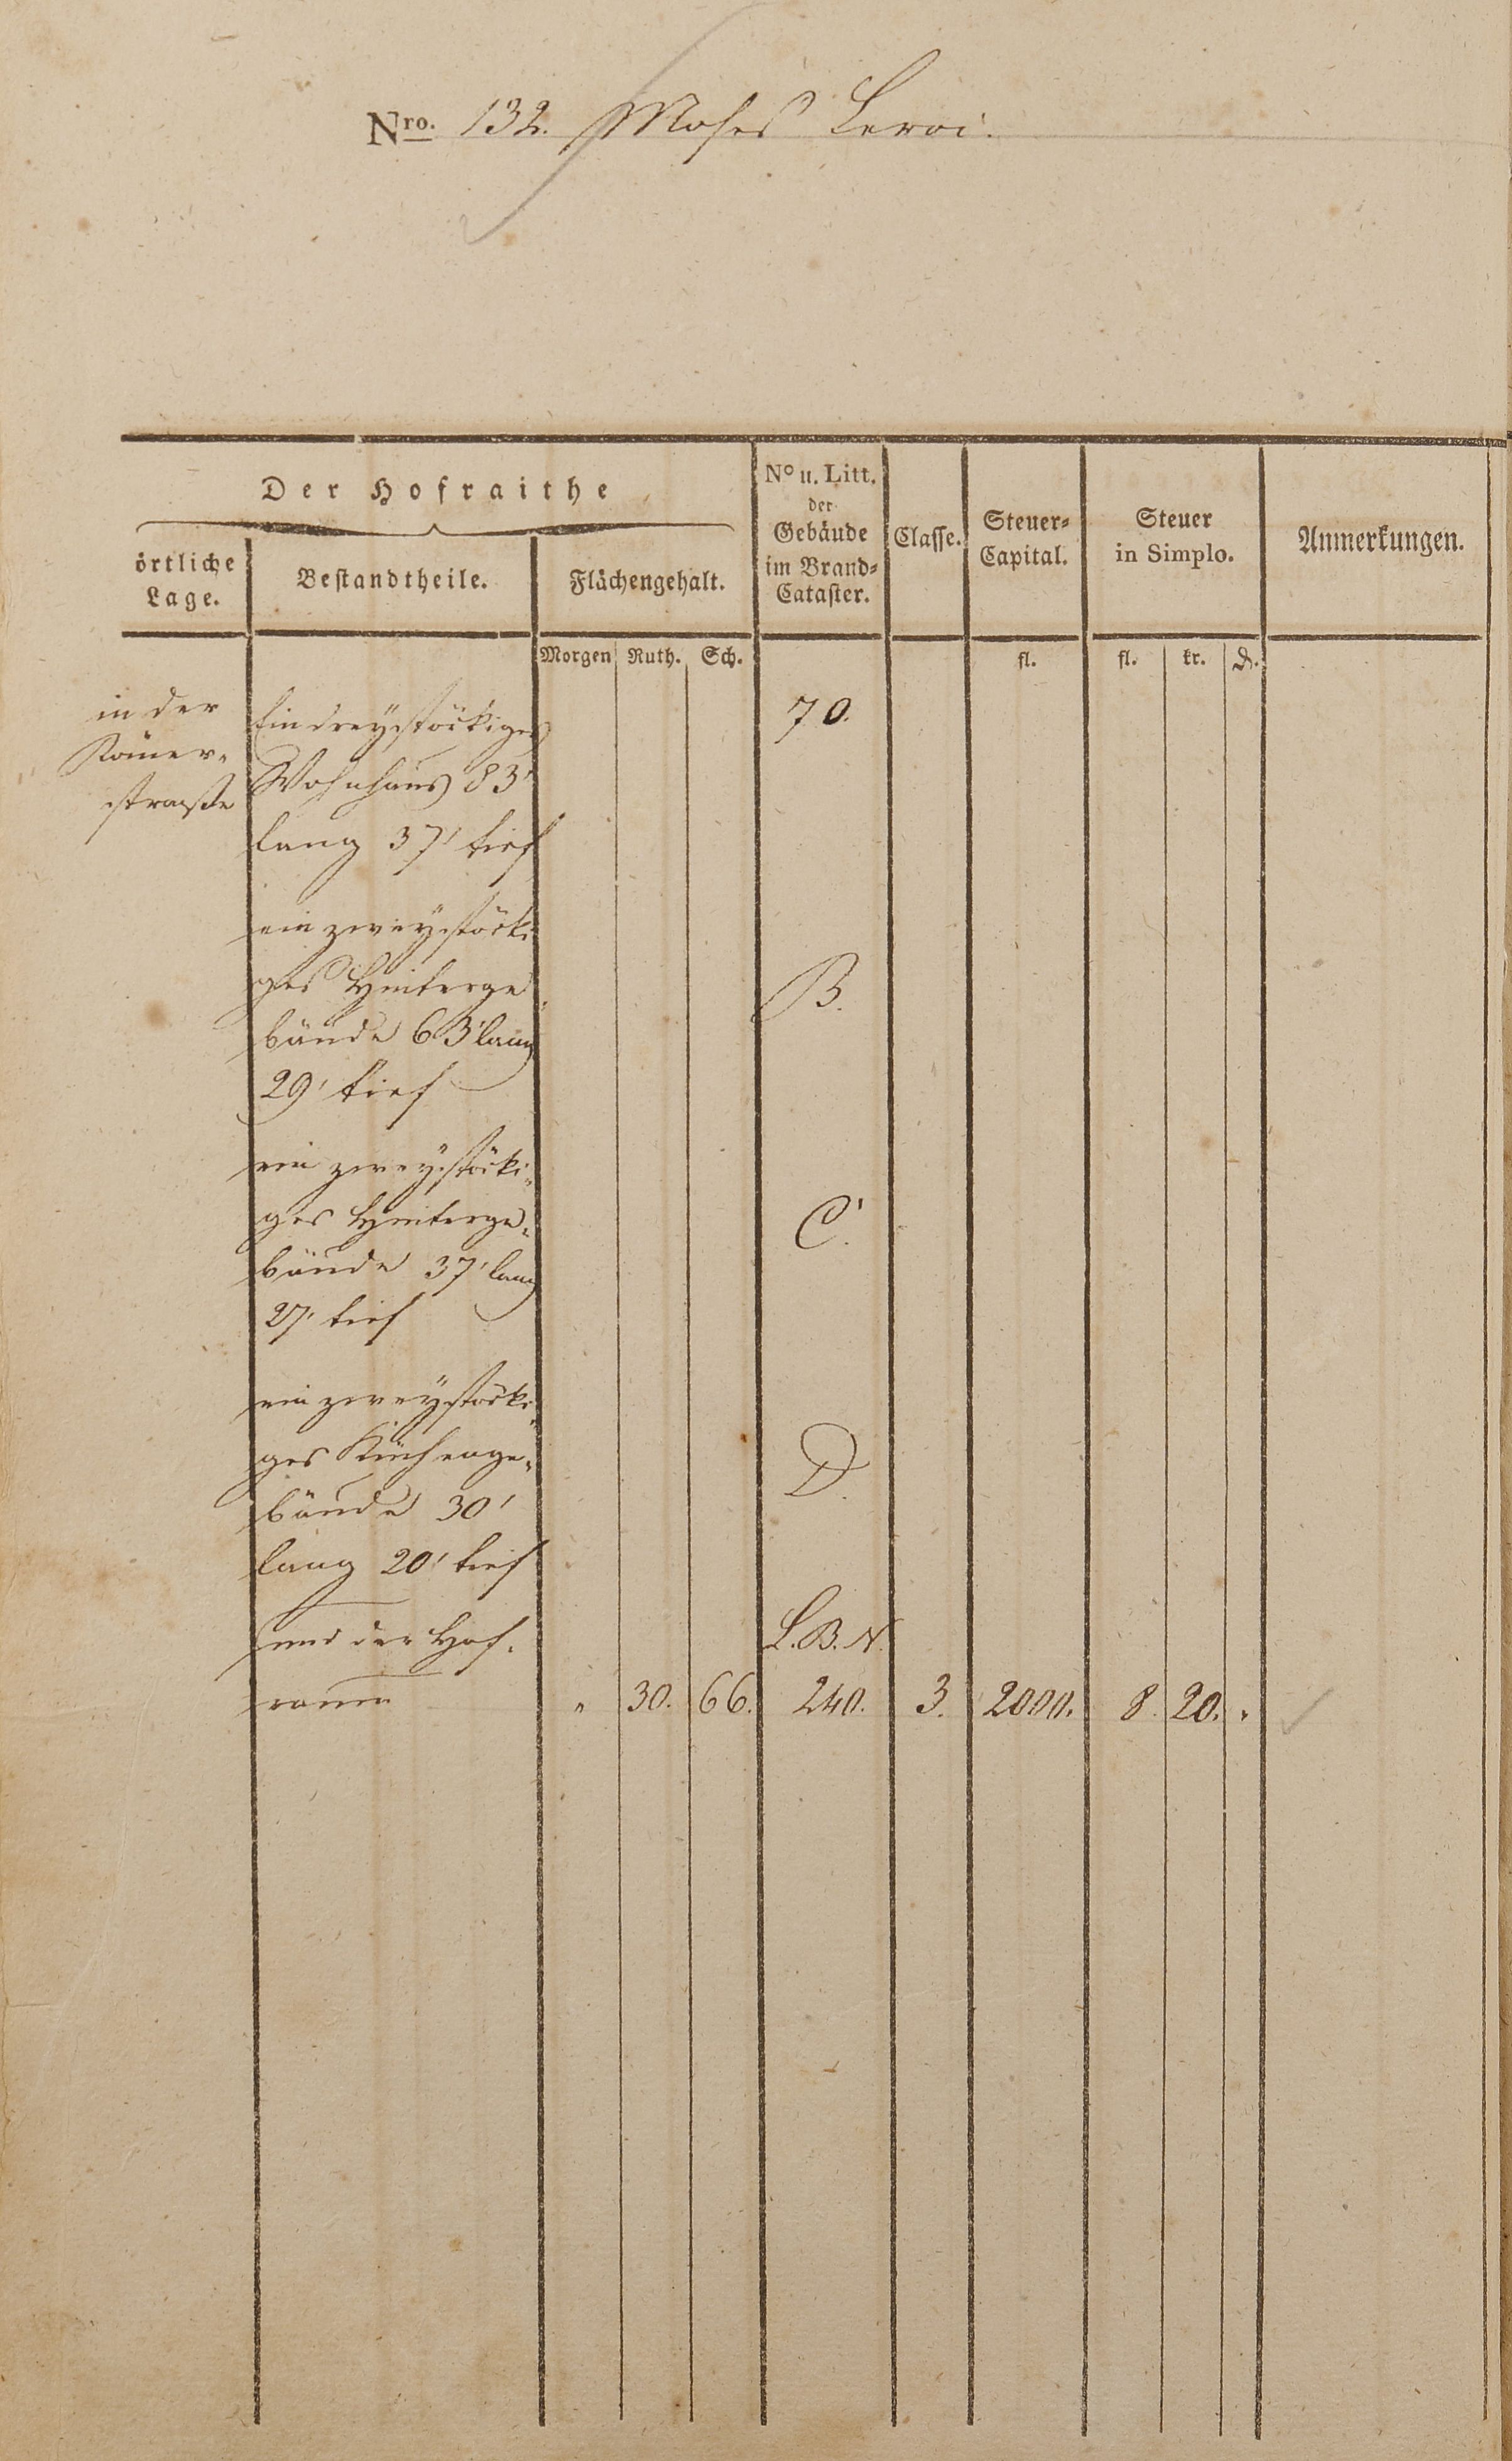 Nro. 132. Moses Leroi.
Der Hofraithe
örtliche Lage.
Bestandtheile.
Flächengehalt.
No u. Litt. der Gebäude im Brand-Cataster.
Classe.
Steuer-Capital.
Steuer in Simplo.
Anmerkungen.
Morgen Ruth. Sch. fl. fl. kr. d.
in der
Römer-
strasse
Ein dreystöckiges 70.
Wohnhaus 83'
lang 37' tief
ein zweystöcki
ges Hinterge B.
bäude 63' lang
29' tief
ein zweystöcki-
ges Hinterge- C.
bäude 37' lang
27' tief
ein zweystöcki-
ges Küchenge- D.
bäude 30'
lang 20' tief
und der Hof- L.B.N.
raum " 30. 66. 240. 3. 2000. 8. 20. "